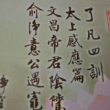 了凡四訓
太上感應篇
文昌帝君陰騭
俞淨意公遇竈